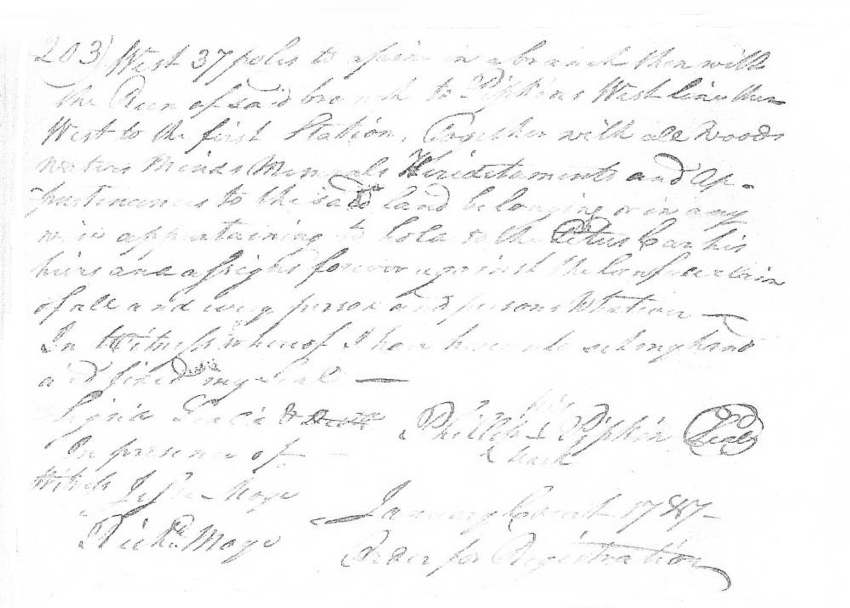 203) West 37 poles to a pine in a branch then with
the Run of said branch to Pipkins West line then
West to the first Station, Together with all Woods
waters Mines Minerals Hereditaments and Ap-
purtinances to the said land belonging or in any
wise appertaining to hold to the Titus Carr his
heirs and assigns forever against the lawfull claim
of all and every person and persons Whatever —
In Witness whereof I have hereunto set my hand
and fixed my seal —
Signd Seald &
In presence of
his
Phillip Pipkin Seal
mark
Witness
Moye
Richd. Moye
January Court 1787
Order for Registration